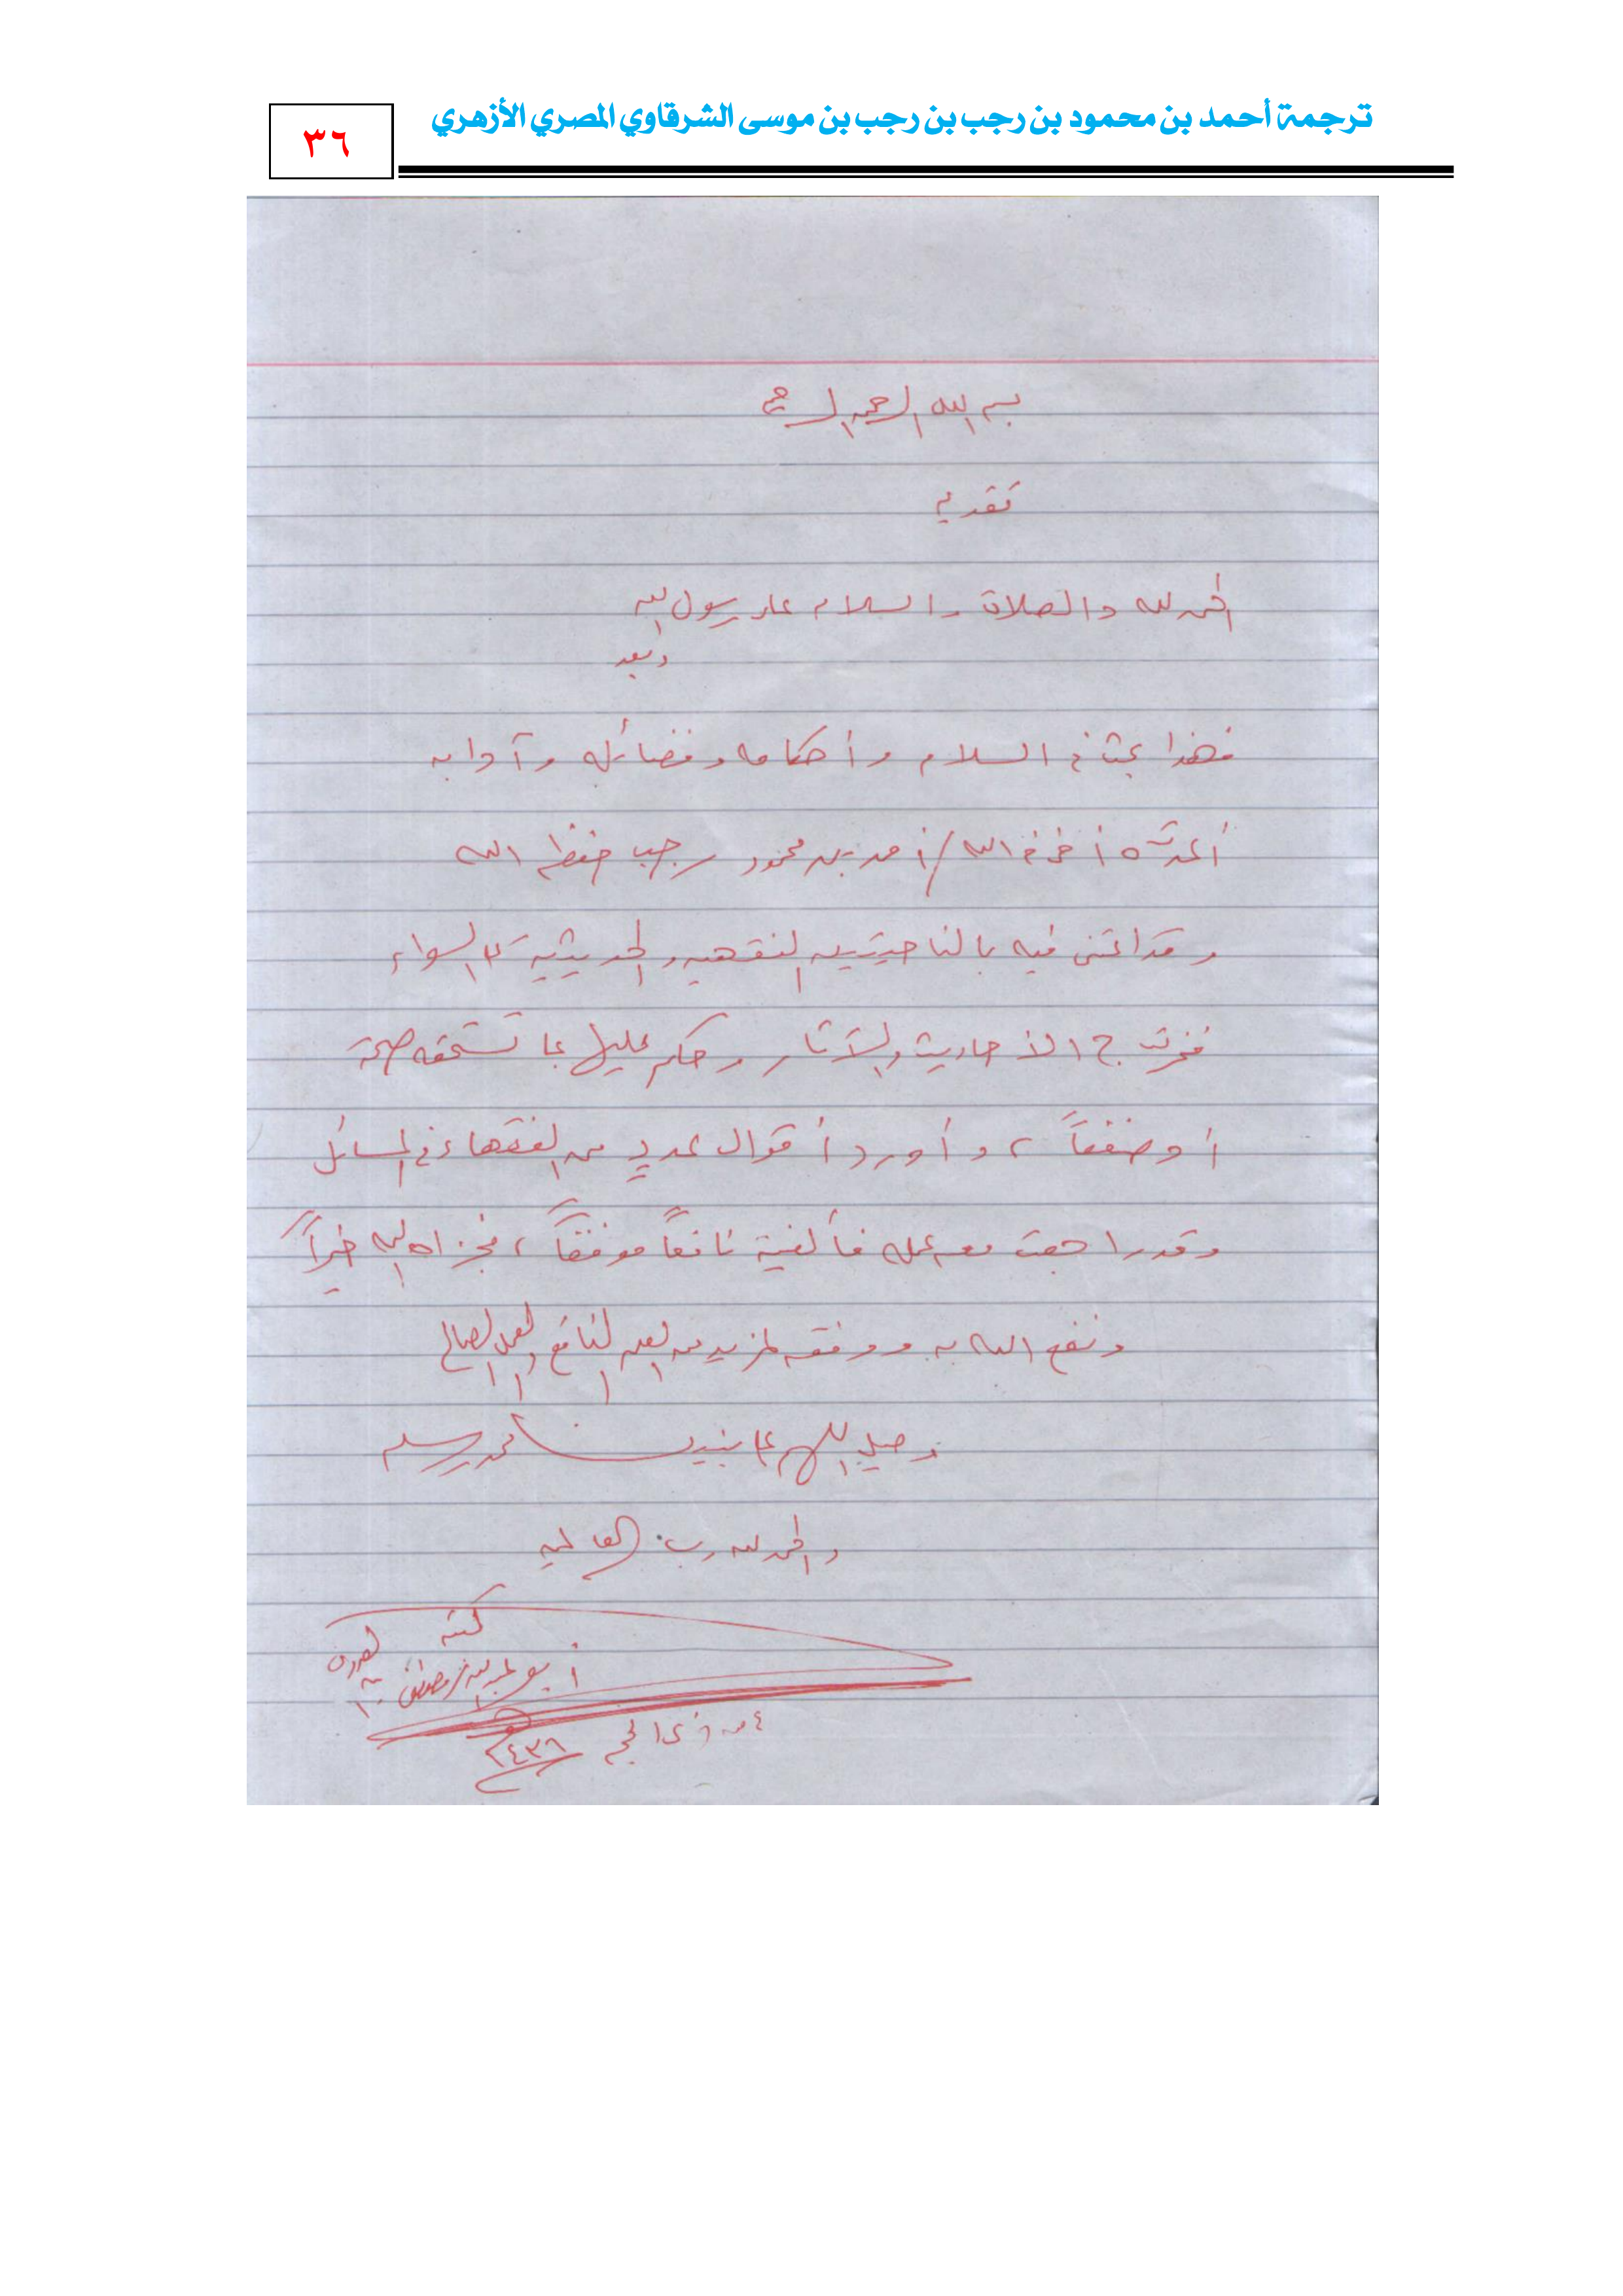 ترجمة أحمد بن محمود بن رجب بن رجب بن موسى الشرقاوي المصري الأزهري
٣٦
بسم الله الرحمن الرحيم
تقديم
الحمد لله والصلاة والسلام على رسول الله
وبعد
فهذا بحث في السلام وأحكامه وفضائله وآدابه
أعده أخي في الله / أحمد بن محمود رجب حفظه الله
وقد اعتنى فيه بالناحيتين الفقهية والحديثية على السواء
فخرج الأحاديث والآثار وحكم عليها بما تستحقه صحة
أو ضعفاً، وأورد أقوال عددٍ من الفقهاء في المسائل
وقد راجعت معه عمله فألفيته نافعاً موفقاً، فجزاه الله خيراً
ونفع الله به ووفقه لمزيد من العلم النافع والعمل الصالح
وصلِّ اللهم على نبينا محمد وسلم
والحمد لله رب العالمين
كتبه
أبو عبد الله / مصطفى بن العدوي
٤ من ذي الحجة ١٤٣٦ هـ